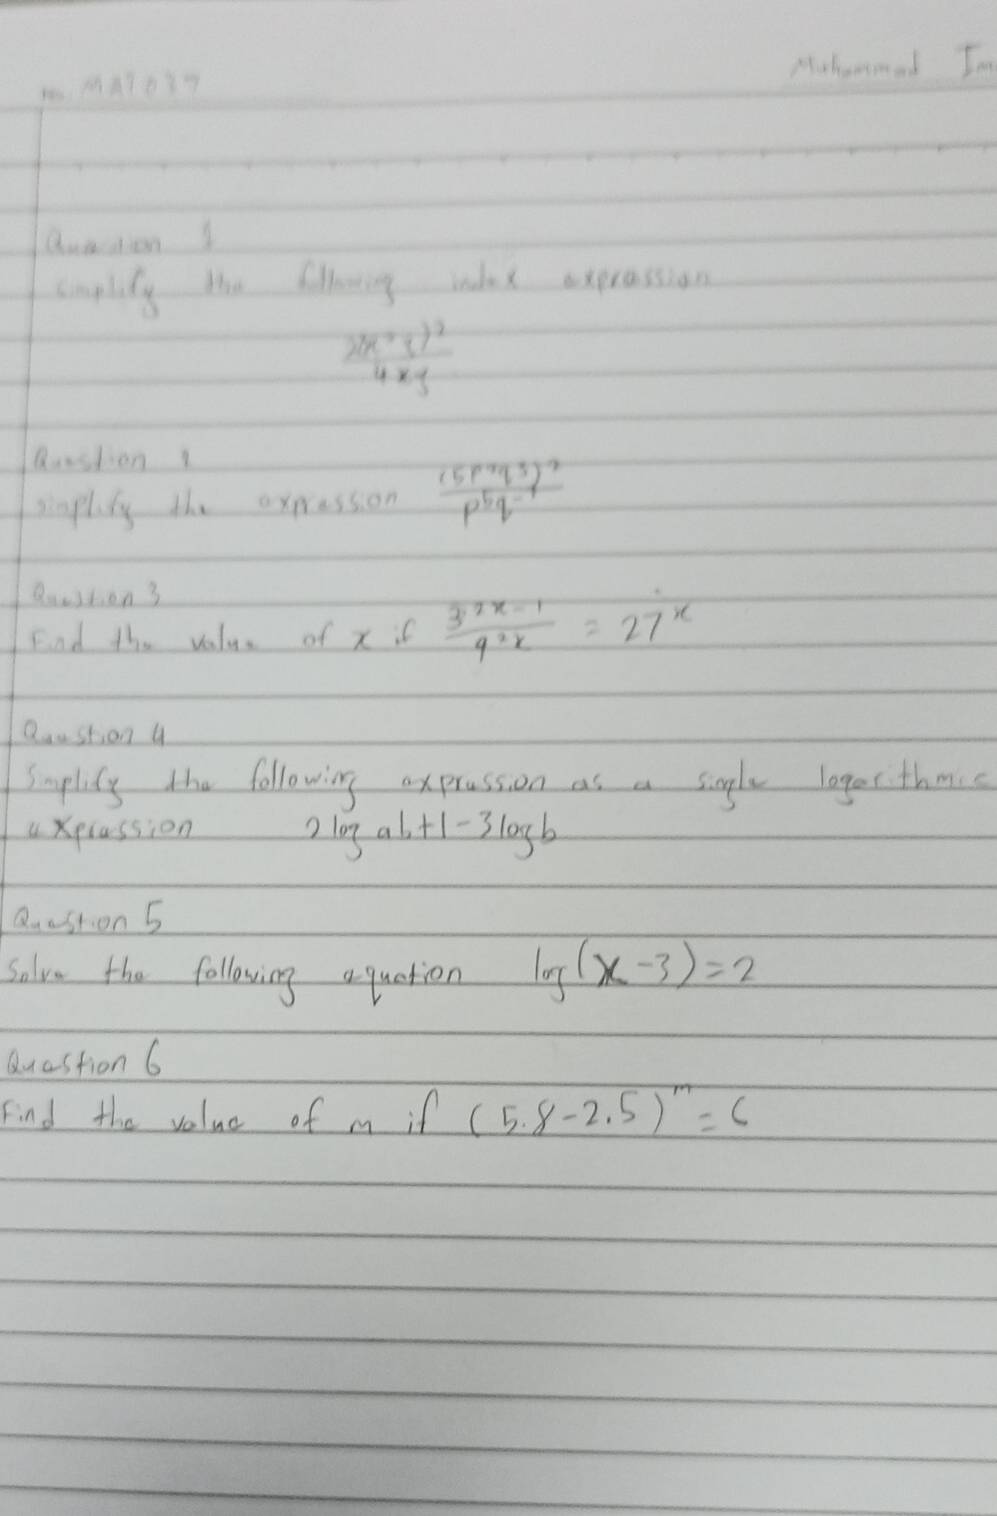 MAT037
Muhammad Im
Question 1
simplify the following index expression
4xy
Question 2
simplify the expression
Question 3
Find the value of x if 3^2x-1 / 9^2x = 27^x
Question 4
Simplify the following expression as a single logarithmic
expression 2 log ab+1-3 log b
Question 5
Solve the following equation log(x-3)=2
Question 6
Find the value of m if (5.8-2.5)^m=6